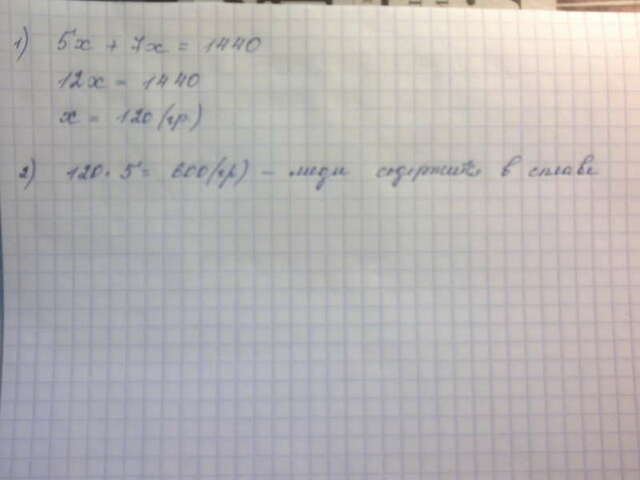 1) 5x + 7x = 1440
12x = 1440
x = 120 (гр.)
2) 120 · 5 = 600 (гр) - меди содержится в сплаве